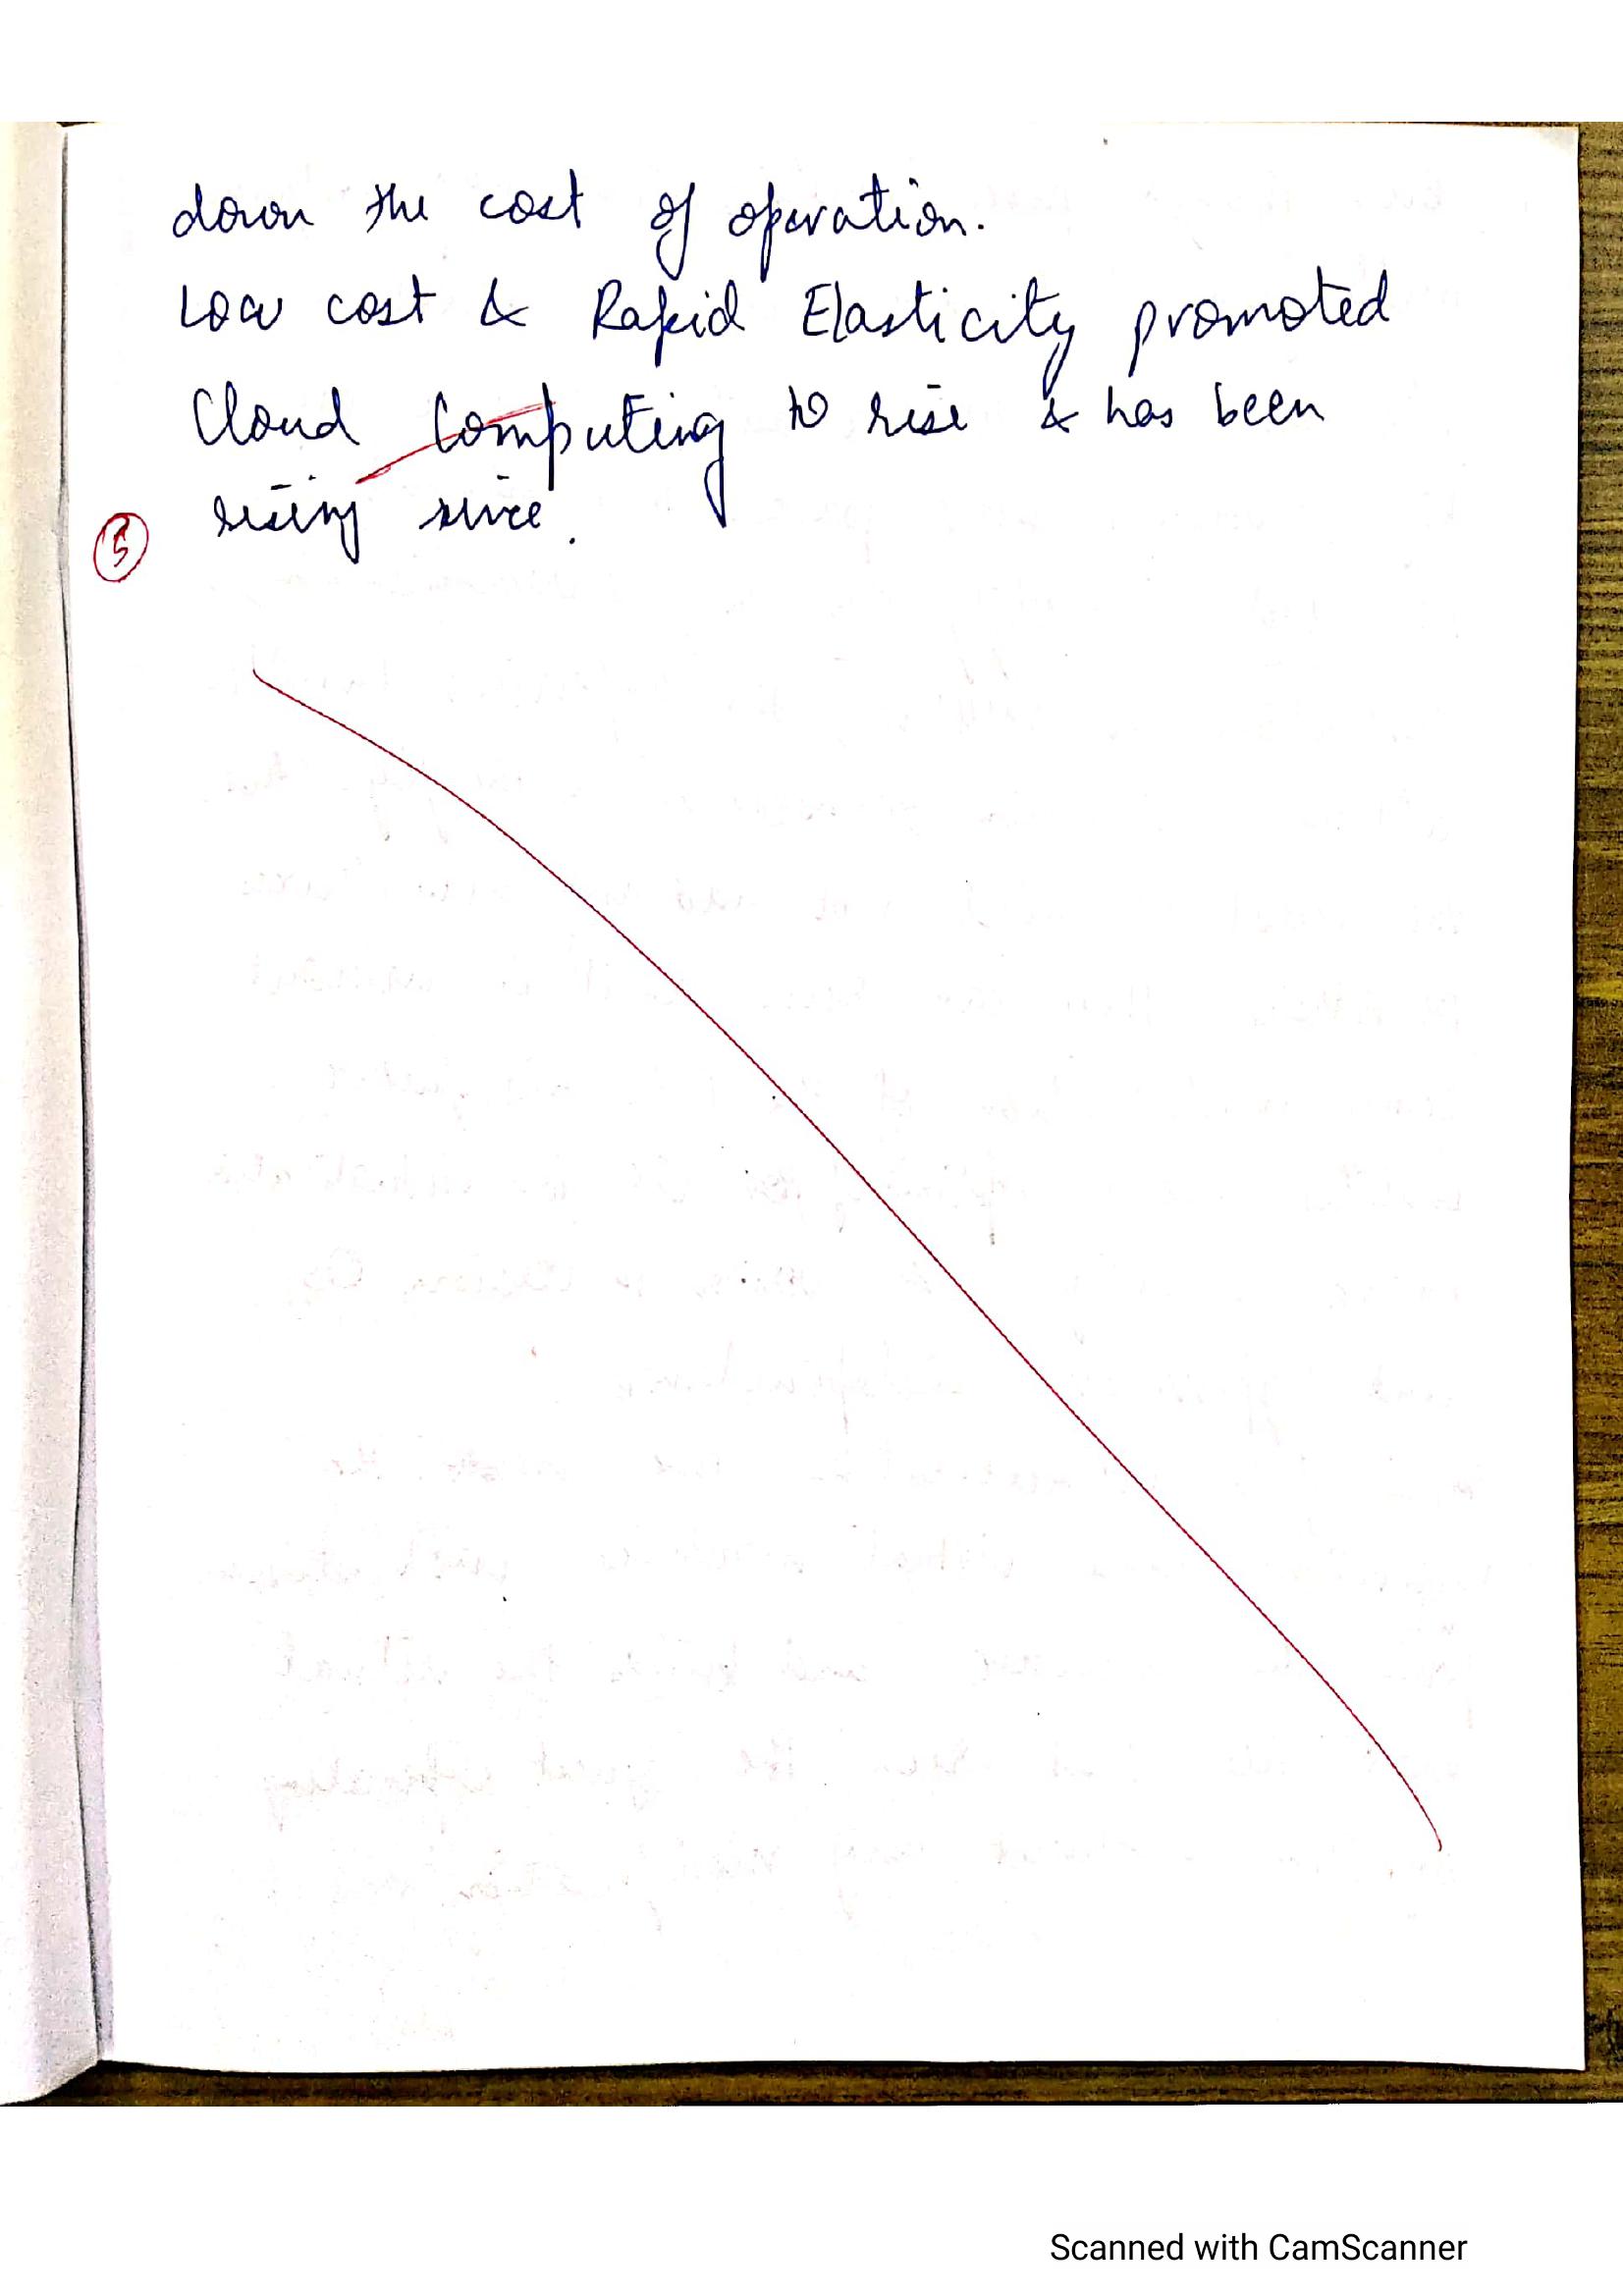 down the cost of operation.
Low cost & Rapid Elasticity promoted
Cloud Computing to rise & has been
rising since.
5
Scanned with CamScanner